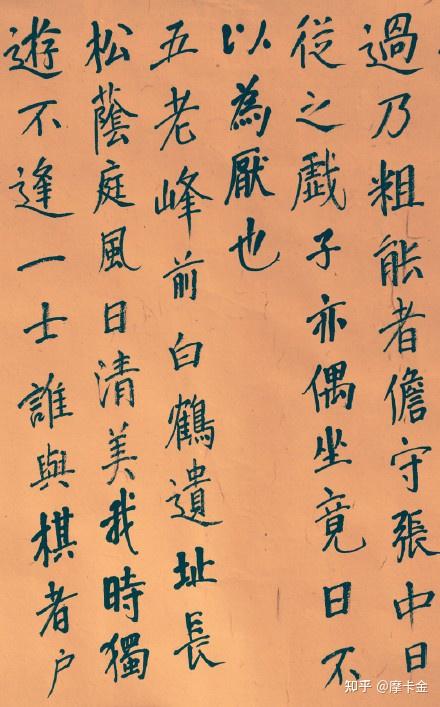 過乃粗能者儋守張中日
從之戲子亦偶坐竟日不
以為厭也
五老峰前白鶴遺址長
松蔭庭風日清美我時獨
遊不逢一士誰與棋者户
知乎 @摩卡金